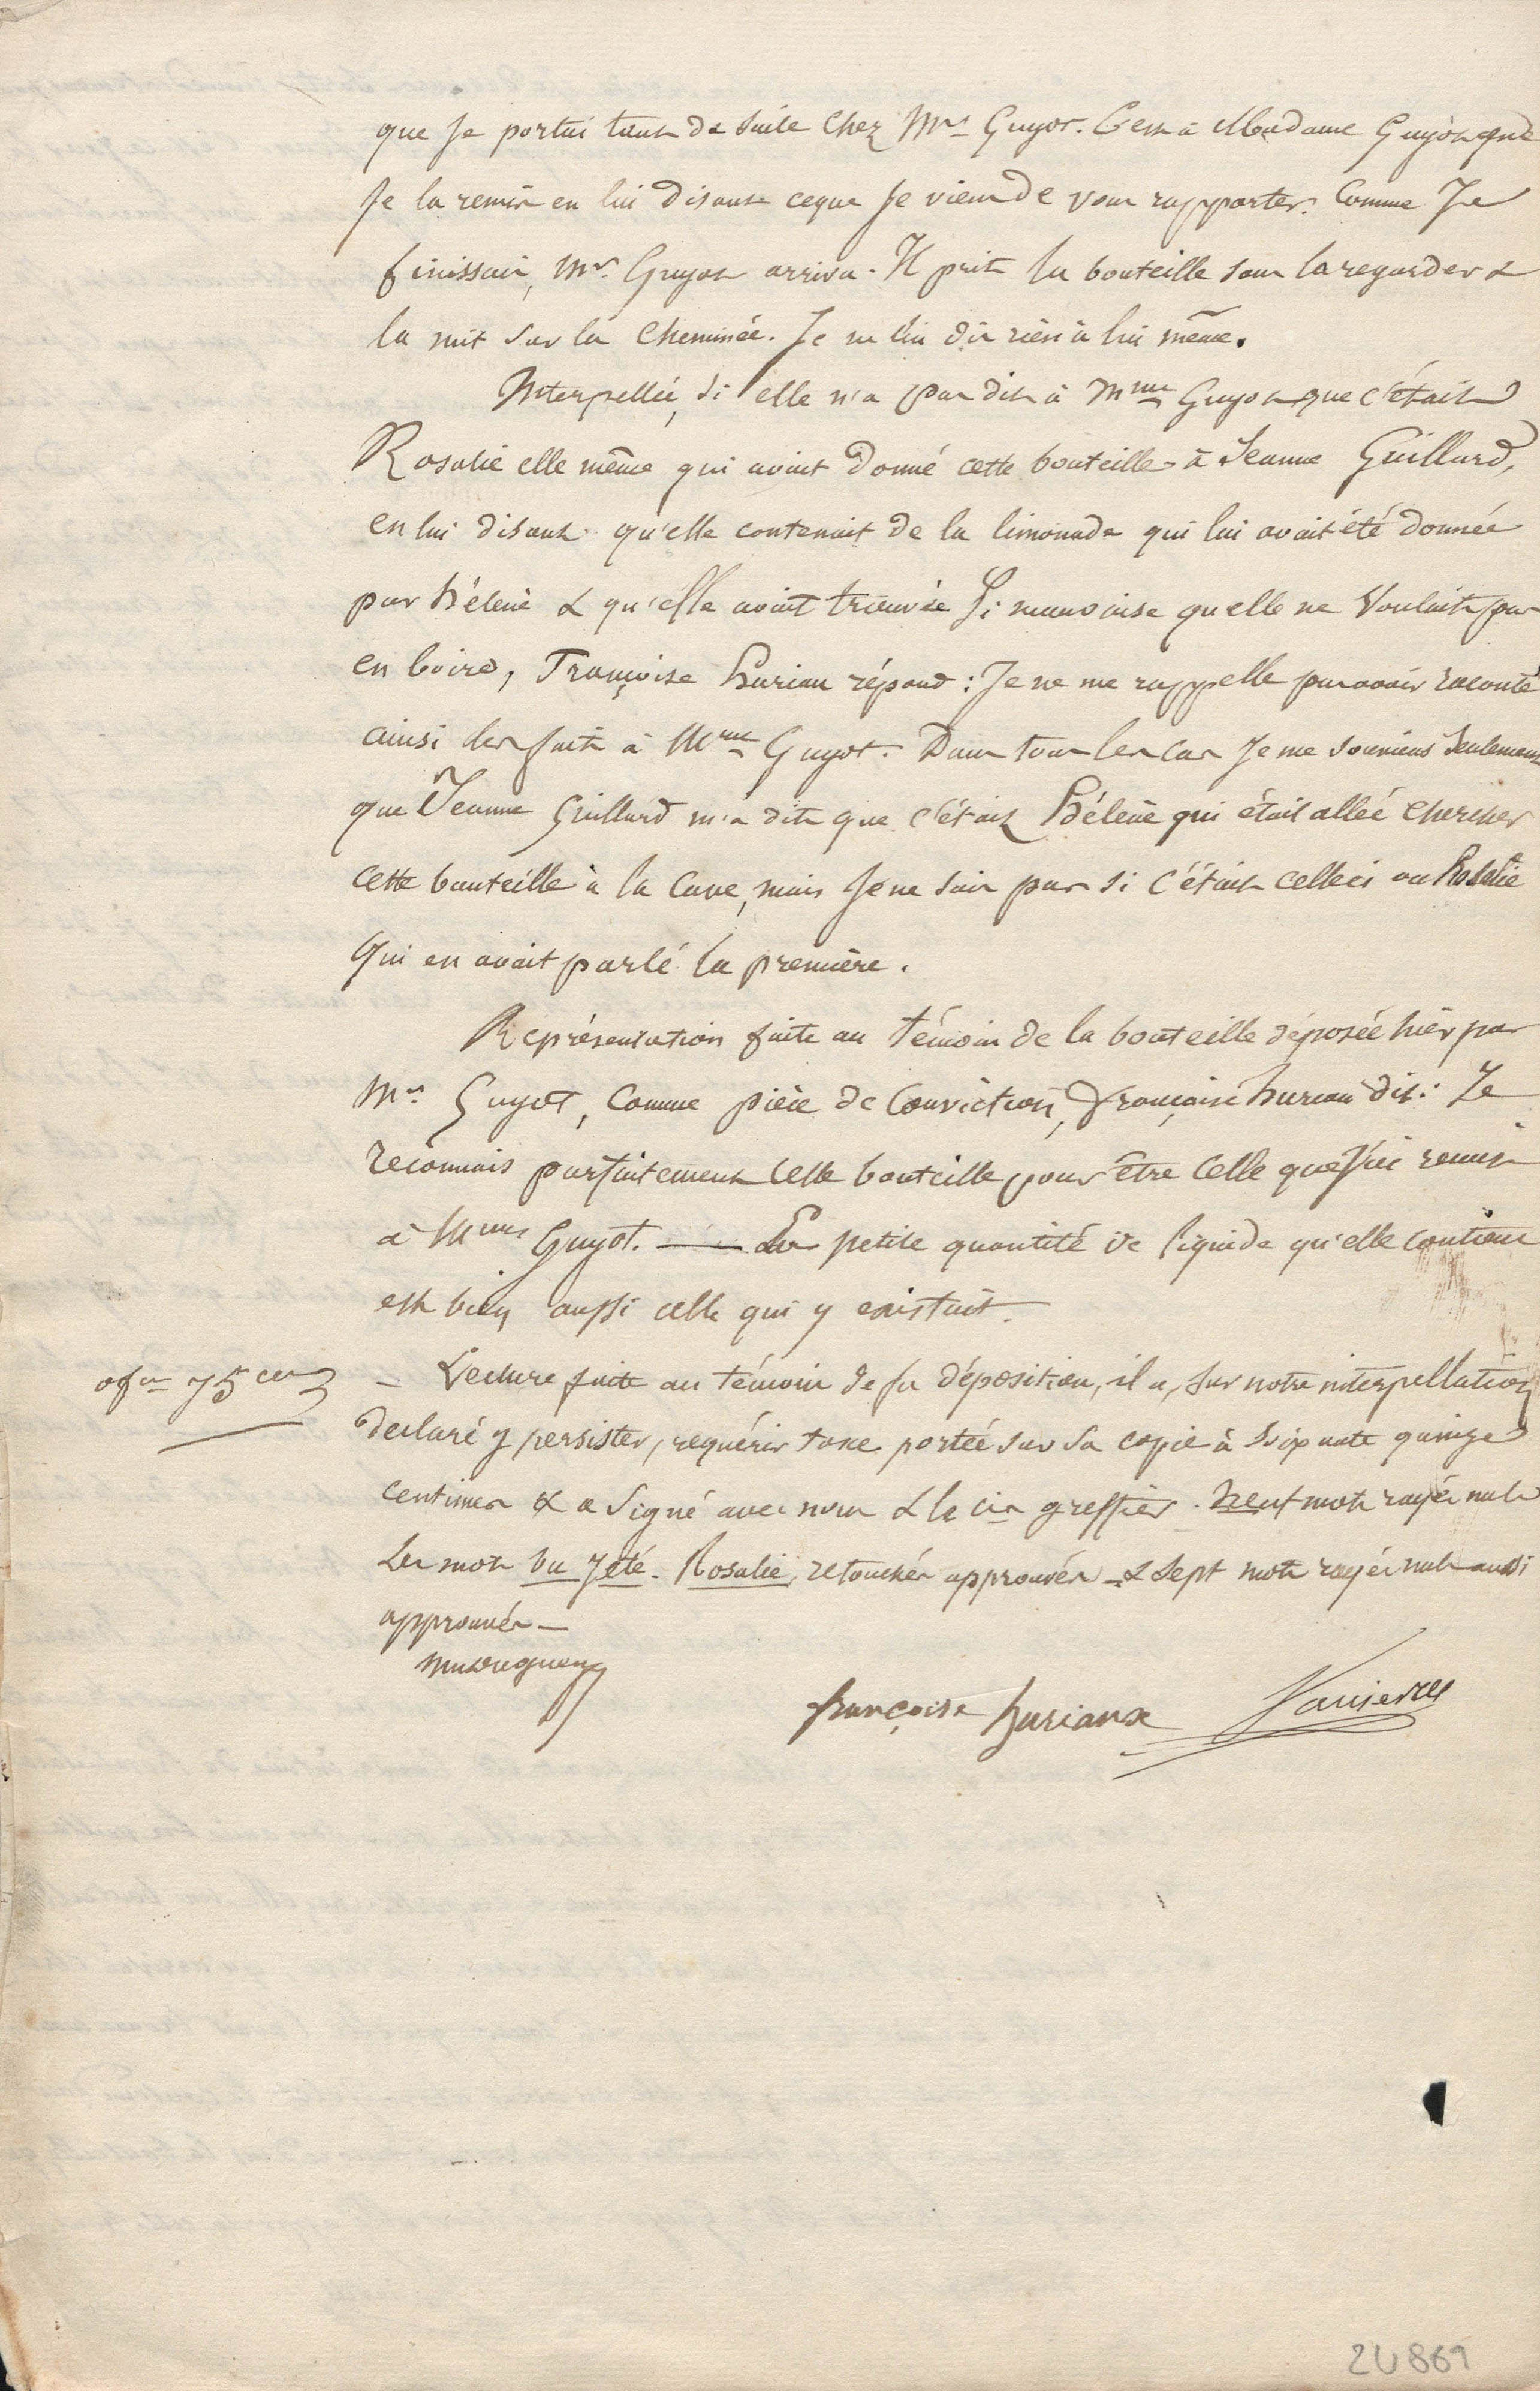 que je portai tout de suite chez Mr Guyot. C'est à Madame Guyot que
je la remis en lui disant ce que je viens de vous rapporter. Comme Je
finissais, Mr Guyot arriva. Il prit la bouteille sans la regarder &
la mit sur la cheminée. Je ne lui dis rien à lui même.
Interpellée, si elle n'a pas dit à Mme Guyot que c'était
Rosalie elle même qui avait donné cette bouteille à Jeanne Guillard,
en lui disant qu'elle contenait de la limonade qui lui avait été donnée
par hélène & qu'elle avait trouvée si mauvaise qu'elle ne voulait pas
en boire, Françoise huriau répond : Je ne me rappelle pas avoir raconté
ainsi les faits à Mme Guyot. Dans tous les cas Je me souviens seulement
que Jeanne Guillard m'a dit que c'était hélène qui était allée chercher
cette bouteille à la cave, mais Je ne sais pas si c'était celle ci ou Rosalie
qui en avait parlé la première.
Représentation faite au témoin de la bouteille déposée hier par
Mr Guyot, comme pièce de conviction, françoise huriau dit : Je
reconnais parfaitement cette bouteille pour être celle que J'ai remise
à Mme Guyot. — La petite quantité de liquide qu'elle contient
est bien aussi celle qui y existait.
0 fr 75 cen
— Lecture faite au témoin de sa déposition, il a, sur notre interpellation
déclaré y persister, requérir taxe portée sur sa copie à soixante quinze
centimes & a signé avec nous & le cis greffier. neuf mots rayés nuls
Les mots bu jeté. Rosalie, retouchés approuvés — & sept mots rayés nuls aussi
approuvés —
françoise huriaux